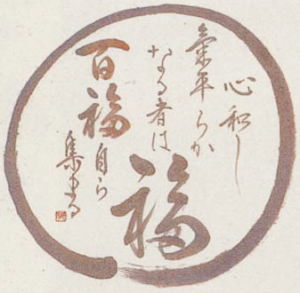 心和し
氣平らか
なる者は
福
百福
自ら
集まる